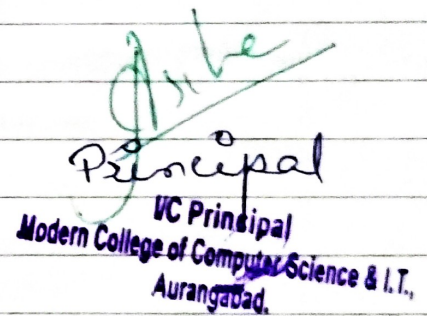 Principal
I/C Principal
Modern College of Computer Science & I.T.,
Aurangabad.